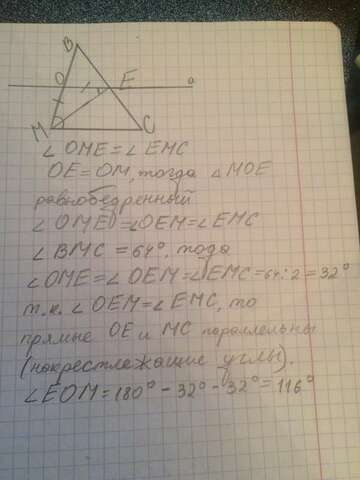 B
O E a
M C
∠ OME = ∠ EMC
OE = OM, тогда ∠ MOE
равнобедренный
∠ OME = ∠OEM = ∠EMC
∠ BMC = 64°, тода
∠ OME = ∠ OEM = ∠ EMC = 64 : 2 = 32°
т.к. ∠ OEM = ∠ EMC, то
прямые OE и MC параллельны
(накрестлежащие углы).
∠EOM = 180° - 32° - 32° = 116°